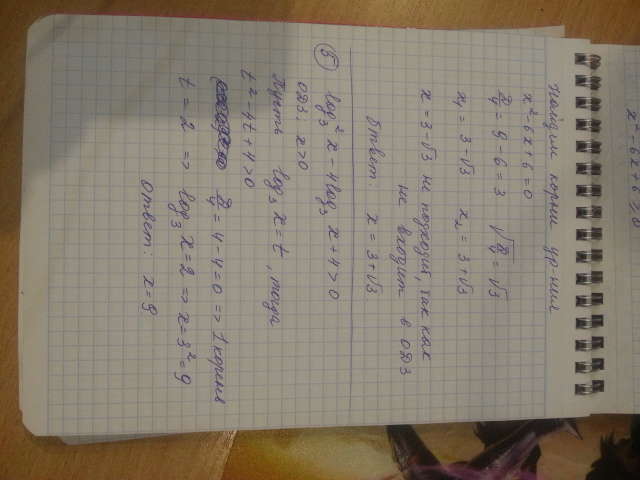 x² - 6x + 6 ≥ 0
Найдём корни ур-ния
x² - 6x + 6 = 0
D/4 = 9 - 6 = 3 √D/4 = √3
x₁ = 3 - √3 x₂ = 3 + √3
x = 3 - √3 не подходит, так как
не входит в ОДЗ
Ответ: x = 3 + √3
⑤ log₃² x - 4 log₃ x + 4 > 0
ОДЗ: x > 0
Пусть log₃ x = t, тогда
t² - 4t + 4 > 0
D/4 = 4 - 4 = 0 => 1 корень
t = 2 => log₃ x = 2 => x = 3² = 9
Ответ: x = 9